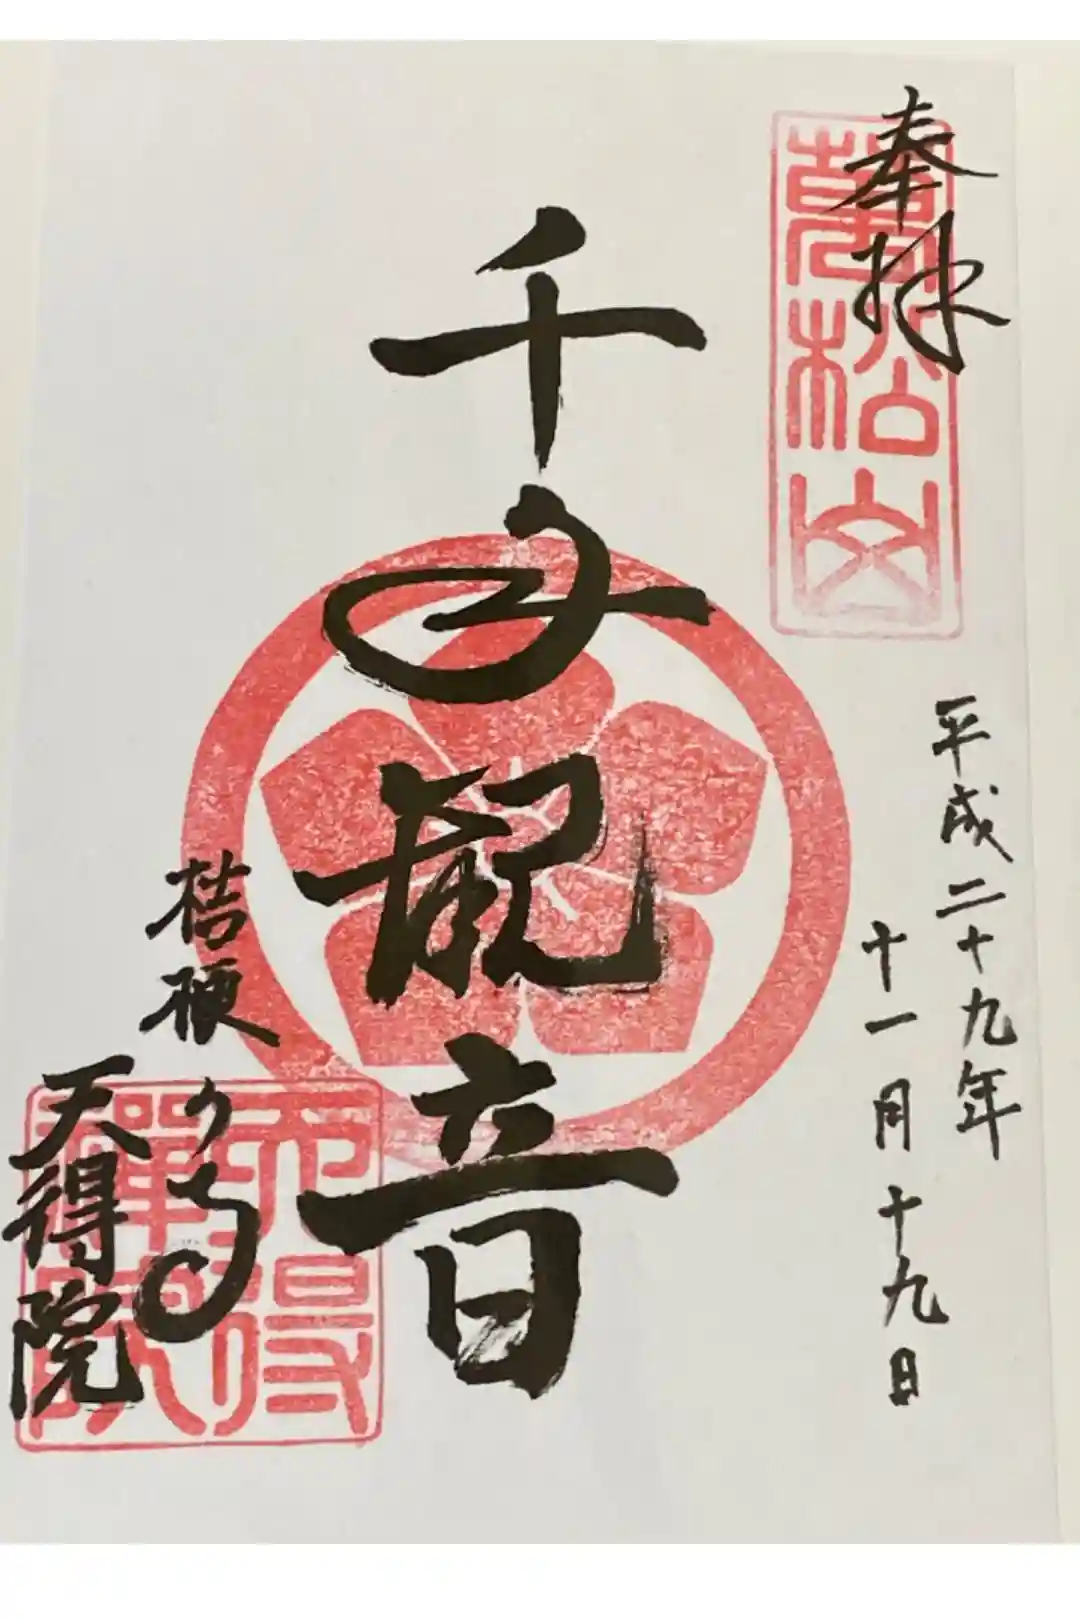 奉拝
萬松山
平成二十九年
十一月十九日
千手観音
桔梗の寺
天得院
天得禅院